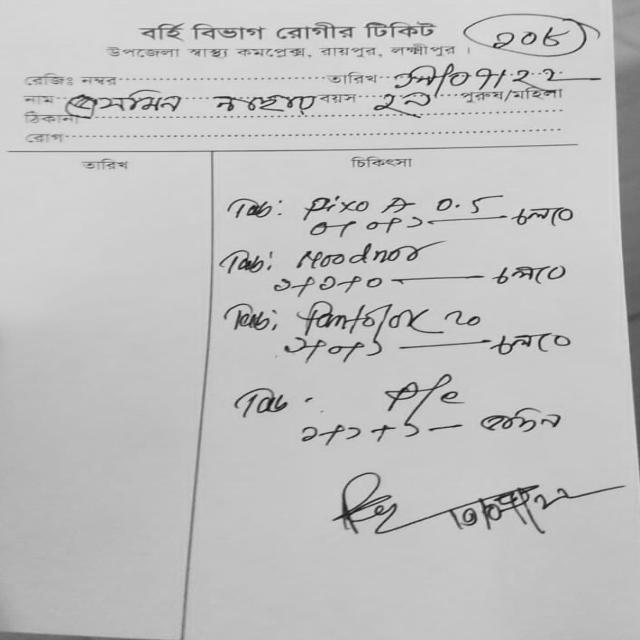 বর্হি বিভাগ রোগীর টিকিট
২০৮
উপজেলা স্বাস্থ্য কমপ্লেক্স, রায়পুর, লক্ষ্মীপুর ।
রেজিঃ নম্বর তারিখ /০৭/২২
নাম বয়স পুরুষ/মহিলা
ঠিকানা
রোগ
তারিখ চিকিৎসা
Tab: Pixo A 0.5
০+০+১ — চলবে
Tab: Moodnor
১+১+০ — চলবে
Tab: Pantolok 20
১+০+১ — চলবে
Tab.
১+১+১ —